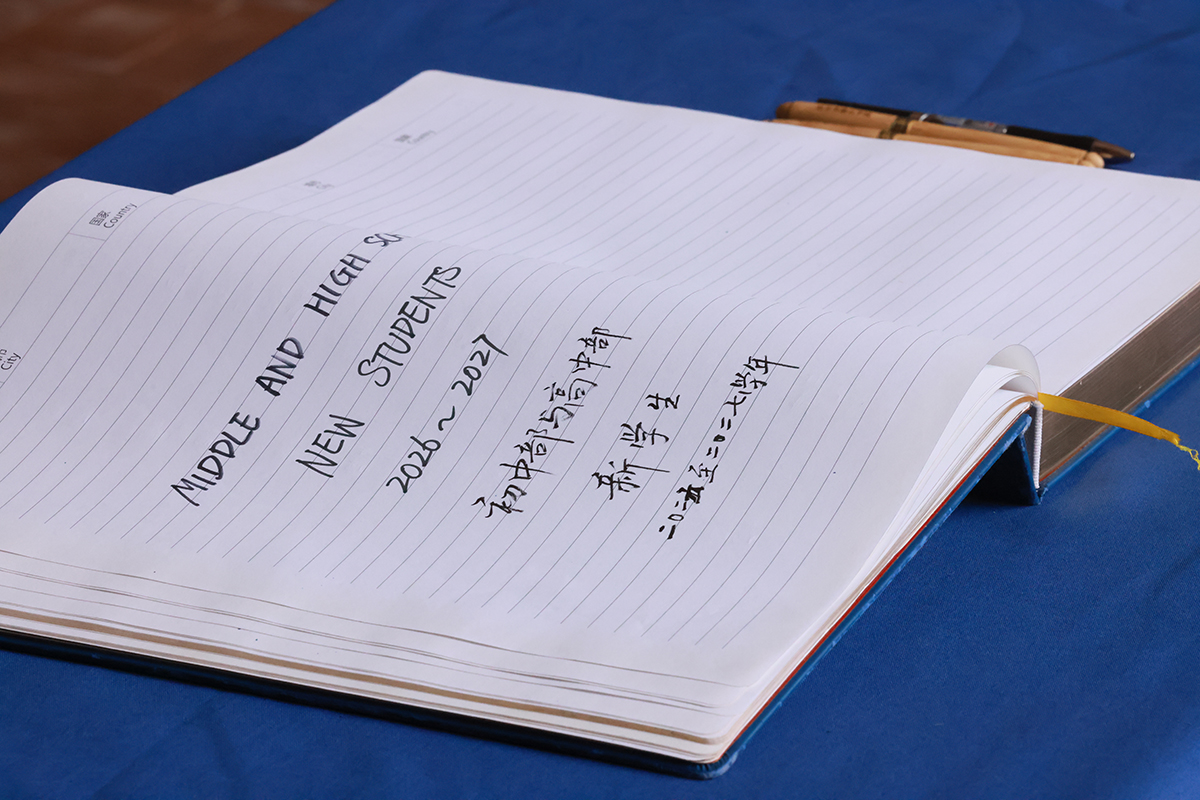 国家
Country
City
MIDDLE AND HIGH SC
NEW STUDENTS
2026~2027
初中部与高中部
新学生
二〇二六至二〇二七学年